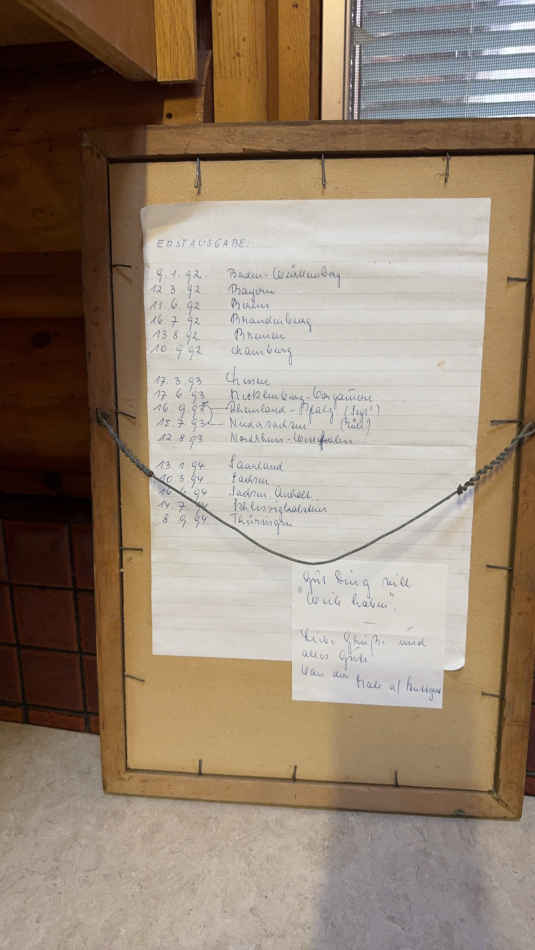 ERSTAUSGABE:
9. 1. 92 Baden-Württemberg
12. 3. 92 Bayern
11. 6. 92 Berlin
16. 7. 92 Brandenburg
13. 8. 92 Bremen
10. 9. 92 Hamburg
17. 3. 93 Hessen
17. 6. 93 Mecklenburg-Vorpommern
16. 9. 93 Rheinland-Pfalz (Sept)
15. 7. 93 Niedersachsen
12. 8. 93 Nordrhein-Westfalen
13. 1. 94 Saarland
10. 3. 94 Sachsen
94 Sachsen Anhalt
14. 7. 94 Schleswigholstein
8. 9. 94 Thüringen
Gut Ding will
"Weile haben".
Liebe Grüße und
alles Gute